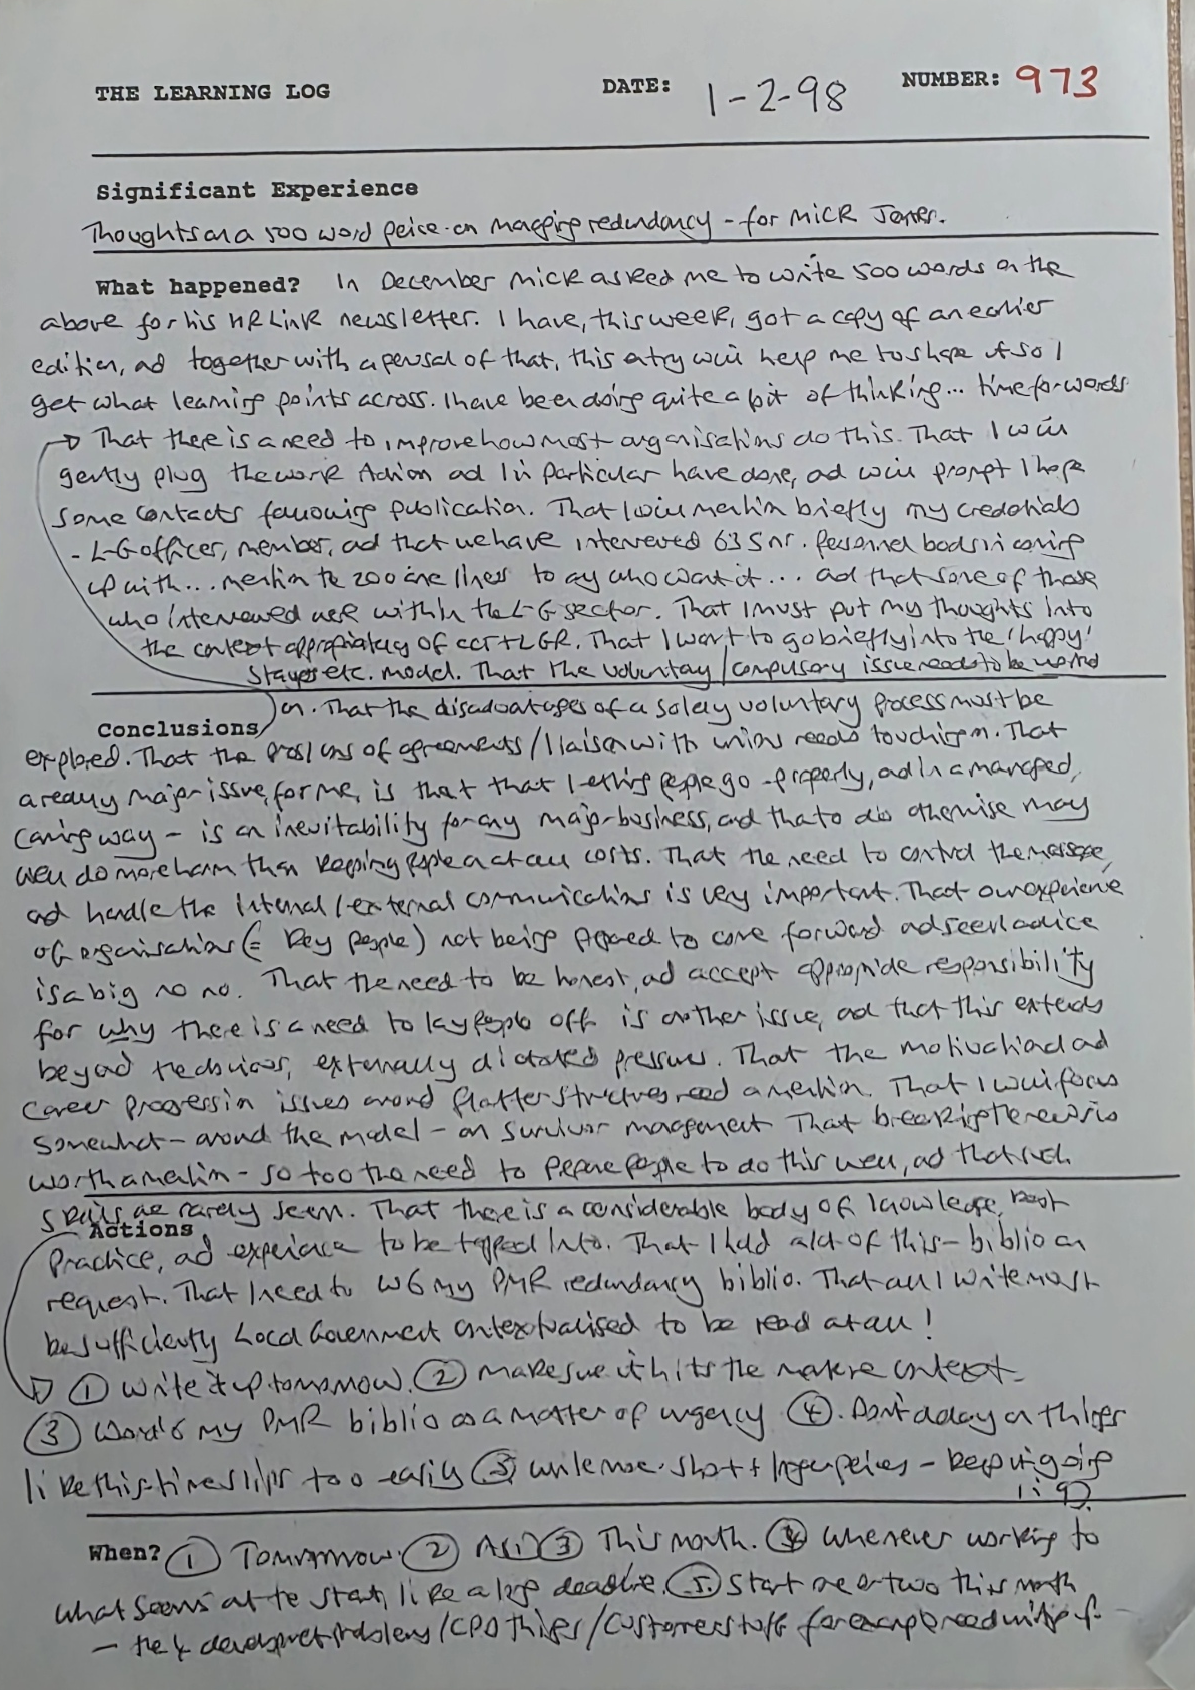 THE LEARNING LOG DATE: 1-2-98 NUMBER: 973
Significant Experience
Thoughts on a 500 word peice on managing redundancy - for Mick James.
What happened? In December Mick asked me to write 500 words on the
above for his HR Link newsletter. I have, this week, got a copy of an earlier
edition, and together with a perusal of that, this entry will help me to shape it so I
get what learning points across. I have been doing quite a bit of thinking... time for words
→ That there is a need to improve how most organisations do this. That I will
gently plug the work Action and I in particular have done, and will prompt I hope
some contacts following publication. That I will mention briefly my credentials
- LG officer, member, and that we have interviewed 635 nr. Personnel bods in coming
up with... mention the 200 one liners to any who want it... and that some of those
who interviewed were within the LG sector. That I must put my thoughts into
the context appropriately of CCT + LGR. That I want to go briefly into the 'happy'
stayers etc. model. That the voluntary / compulsory issue needs to be worked
on. That the disadvantages of a solely voluntary process must be
Conclusions
explored. That the pros/cons of agreements / liaison with unions needs touching on. That
a really major issue, for me, is that that letting people go - properly, and in a managed,
caring way - is an inevitability for any major business, and that to do otherwise may
well do more harm than keeping people on at all costs. That the need to control the message,
and handle the internal / external communications is very important. That our experience
of organisations (= key people) not being prepared to come forward and seek advice
is a big no no. That the need to be honest, and accept appropriate responsibility
for why there is a need to lay people off is another issue, and that this extends
beyond the obvious, externally dictated pressures. That the motivation and
career progression issues around flatter structures need a mention. That I will focus
somewhat - around the model - on survivor management. That breaking the news is
worth a mention - so too the need to prepare people to do this well, and that such
skills are rarely seen. That there is a considerable body of knowledge, best
Actions
practice, and experience to be tapped into. That I hold a lot of this - biblio on
request. That I need to W6 my PMR redundancy biblio. That all I write must
be sufficiently Local Government contextualised to be read at all!
→ ① Write it up tomorrow. ② Make sure it hits the market context.
③ Word 6 my PMR biblio as a matter of urgency ④. Don't delay on things
like this - time slips too easily ⑤ write more short + longer peices - keep it going
When? ① Tomorrow. ② As ① ③ This month. ④ Whenever working to
what seems at the start, like a long deadline. ⑤. Start one or two this month
- the 4 development problems / CPD things / customer stuff for example need writing up -